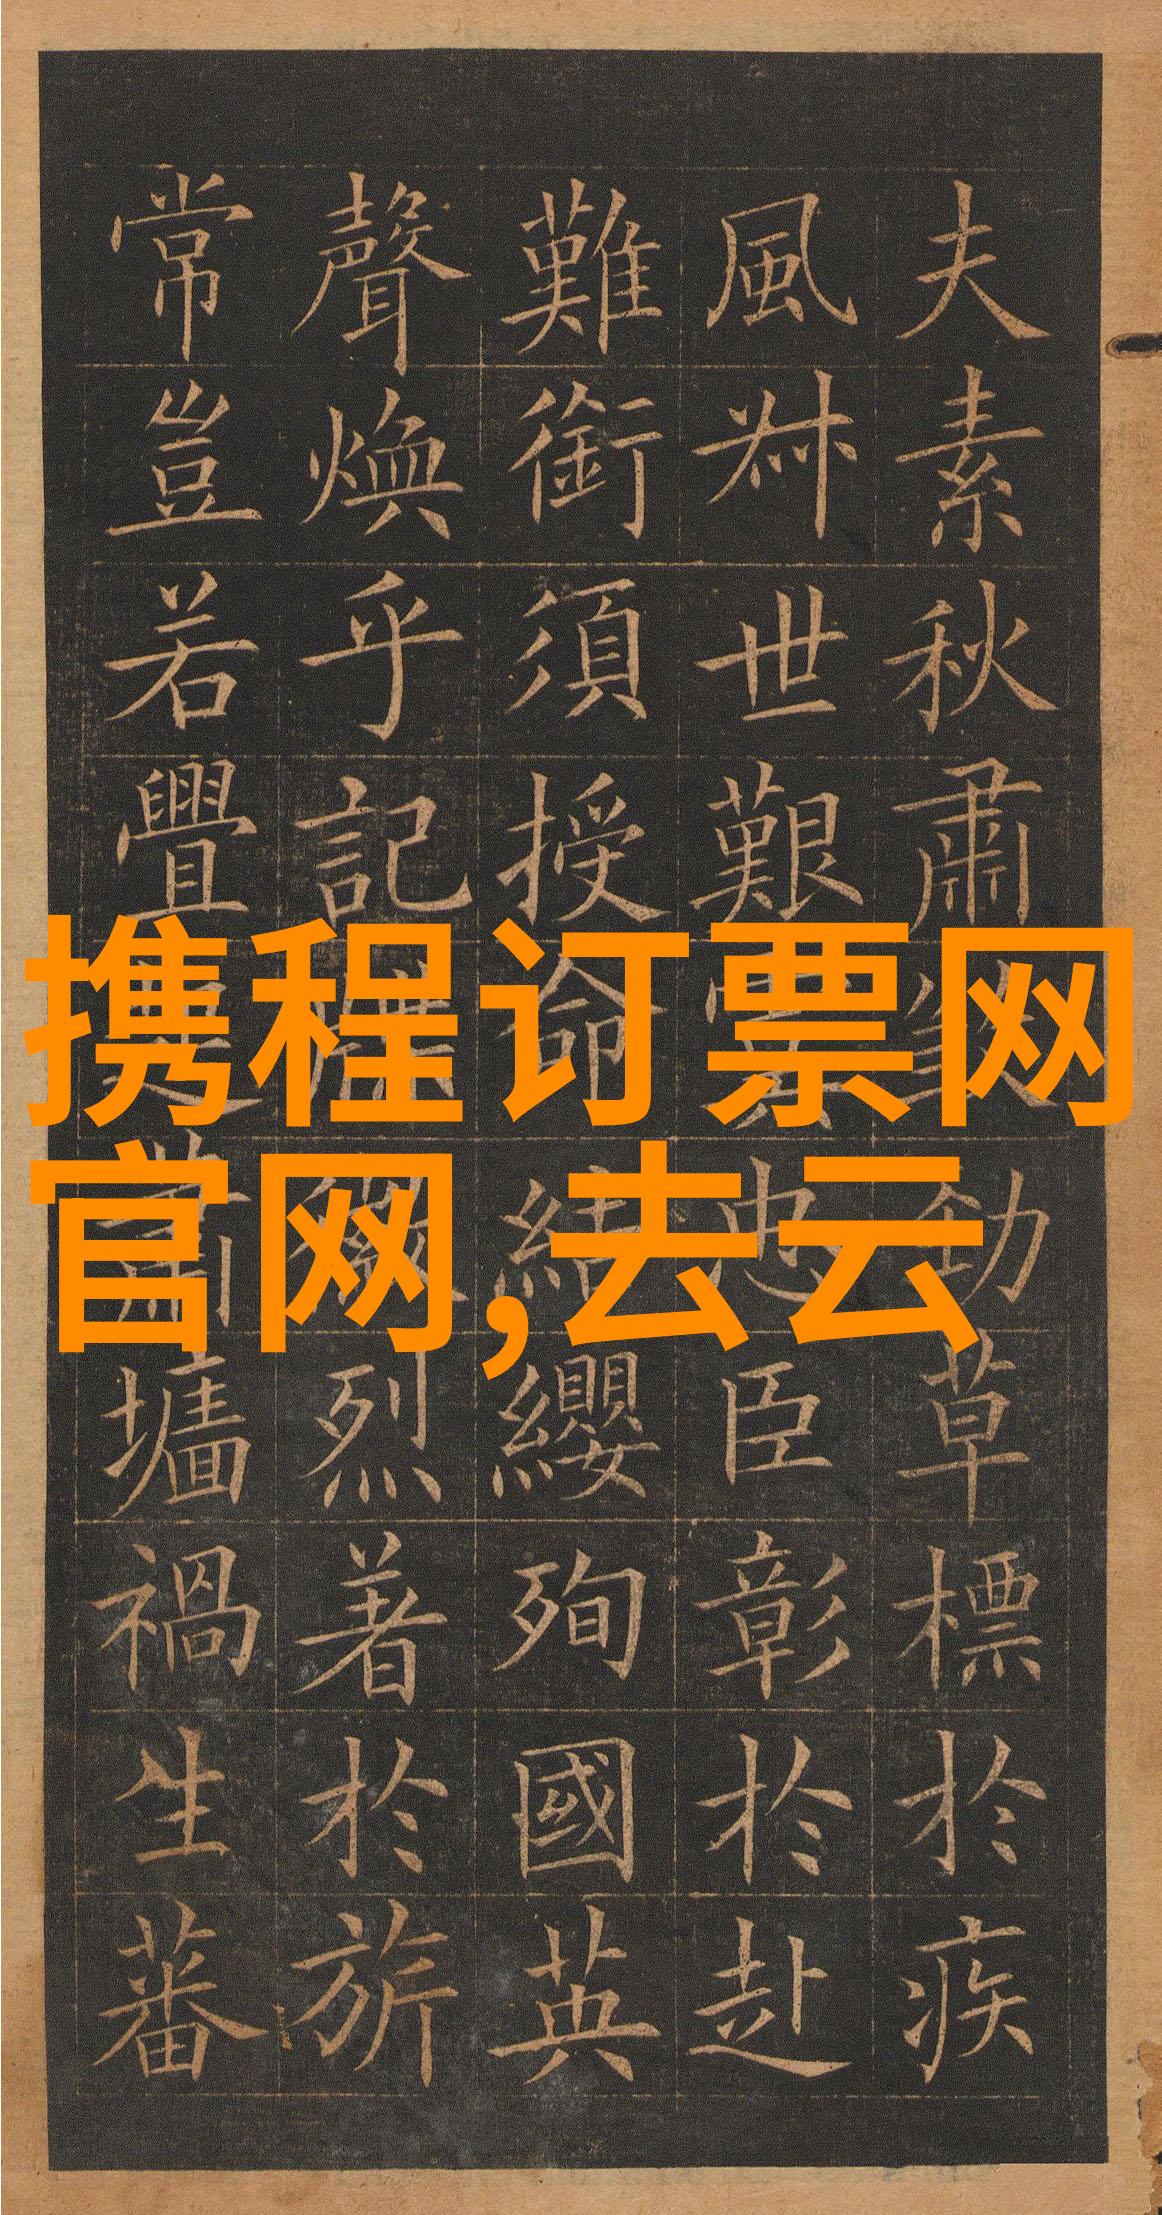 夫素秋肅勁草標於疾
風叔世艱忠臣彰於赴
難銜須授命結纓殉國英
聲煥乎記烈著於旂
常豈若舋墻禍生蕃
携程订票网
官网,去云